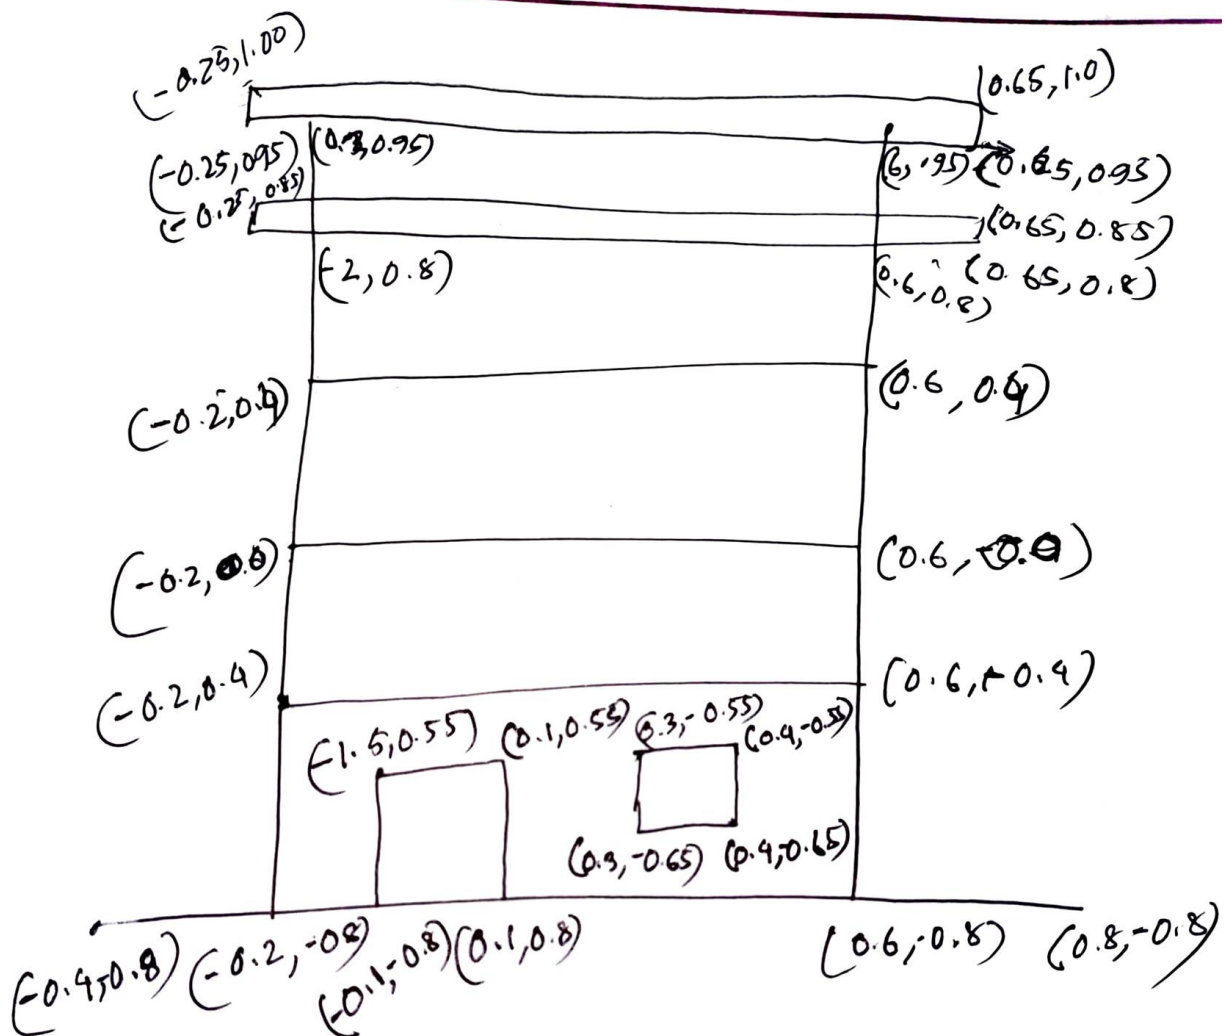 (-0.25,1.00)
(0.65,1.0)
(-0.25,095)
(6,.95)
(-0.25,0.85)
(0.65,0.85)
(-2,0.8)
(0.6,0.8)
(0.65,0.8)
(0.6,0.4)
(-0.2,0.4)
(0.6,+0.4)
(-1.5,0.55)
(0.1,0.55)
(0.3,-0.55)
(0.4,-0.55)
(0.3,-0.65)
(0.4,-0.65)
(-0.4,-0.8)
(-0.2,-08)
(-0.1,-0.8)
(0.1,0.8)
(0.6,-0.8)
(0.8,-0.8)